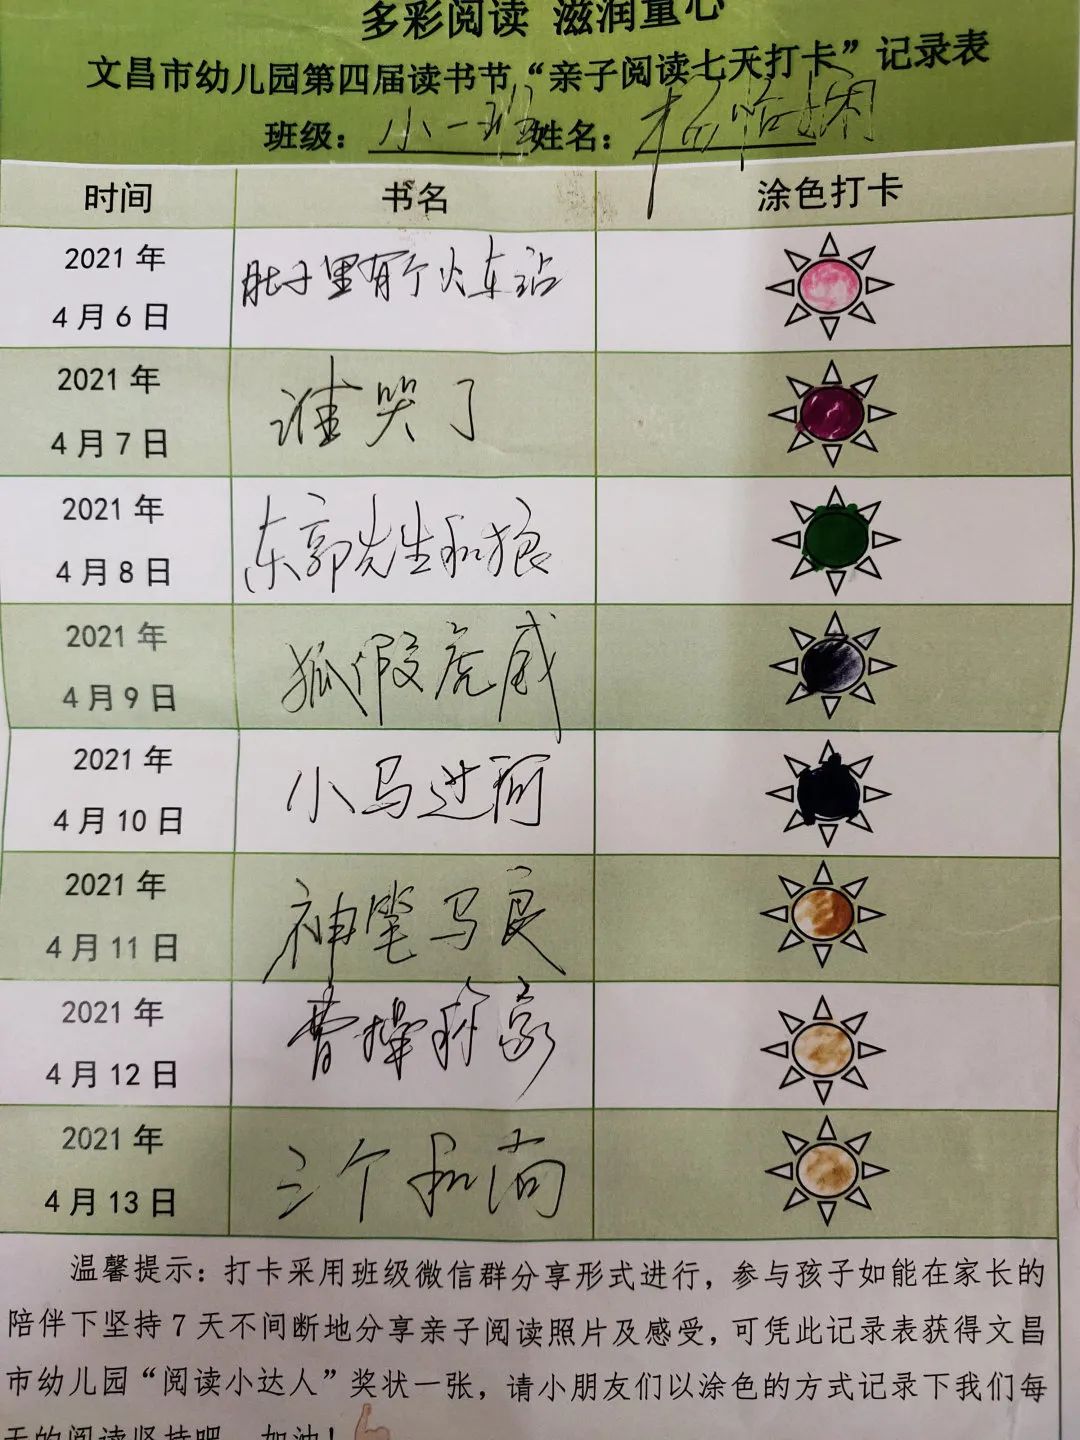 多彩阅读 滋润童心
文昌市幼儿园第四届读书节“亲子阅读七天打卡”记录表
班级：小一班 姓名：杨怡娴
时间 书名 涂色打卡
2021 年
4 月 6 日
肚子里有个火车站
2021 年
4 月 7 日
谁哭了
2021 年
4 月 8 日
东郭先生和狼
2021 年
4 月 9 日
狐假虎威
2021 年
4 月 10 日
小马过河
2021 年
4 月 11 日
神笔马良
2021 年
4 月 12 日
曹操称象
2021 年
4 月 13 日
三个和尚
温馨提示：打卡采用班级微信群分享形式进行，参与孩子如能在家长的
陪伴下坚持 7 天不间断地分享亲子阅读照片及感受，可凭此记录表获得文昌
市幼儿园“阅读小达人”奖状一张，请小朋友们以涂色的方式记录下我们每
天的阅读坚持吧，加油！